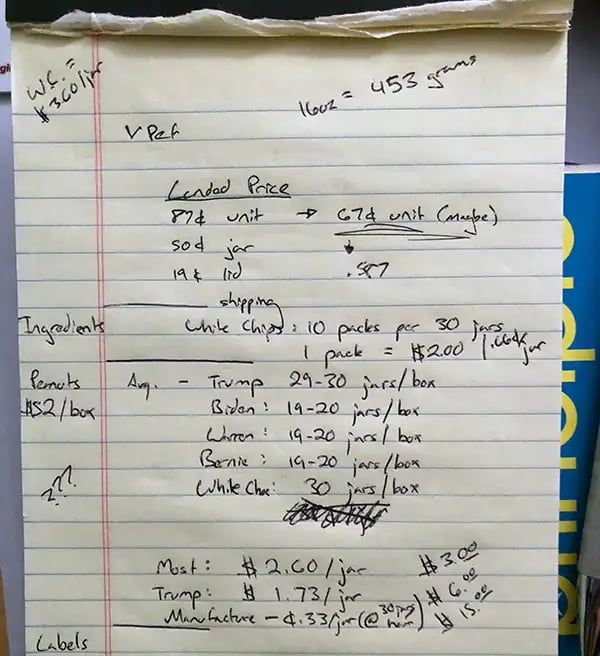 W.C. =
$3.60/jar
16oz = 453 grams
V Pef
Landed Price
87¢ unit → 67¢ unit (maybe)
50¢ jar
19¢ lid .587
shipping
Ingredients White Chips: 10 packs per 30 jars
1 pack = $2.00 1.66¢/jar
Peanuts Avg. - Trump 29-30 jars/box
$52/box Biden: 19-20 jars/box
Warren: 19-20 jars/box
Bernie: 19-20 jars/box
??? White Choc: 30 jars/box
Most: $2.60/jar $3.00
Trump: $1.73/jar $6.00
Manufacture - ¢.33/jar (@ 30 jars hour) $15.00
Labels